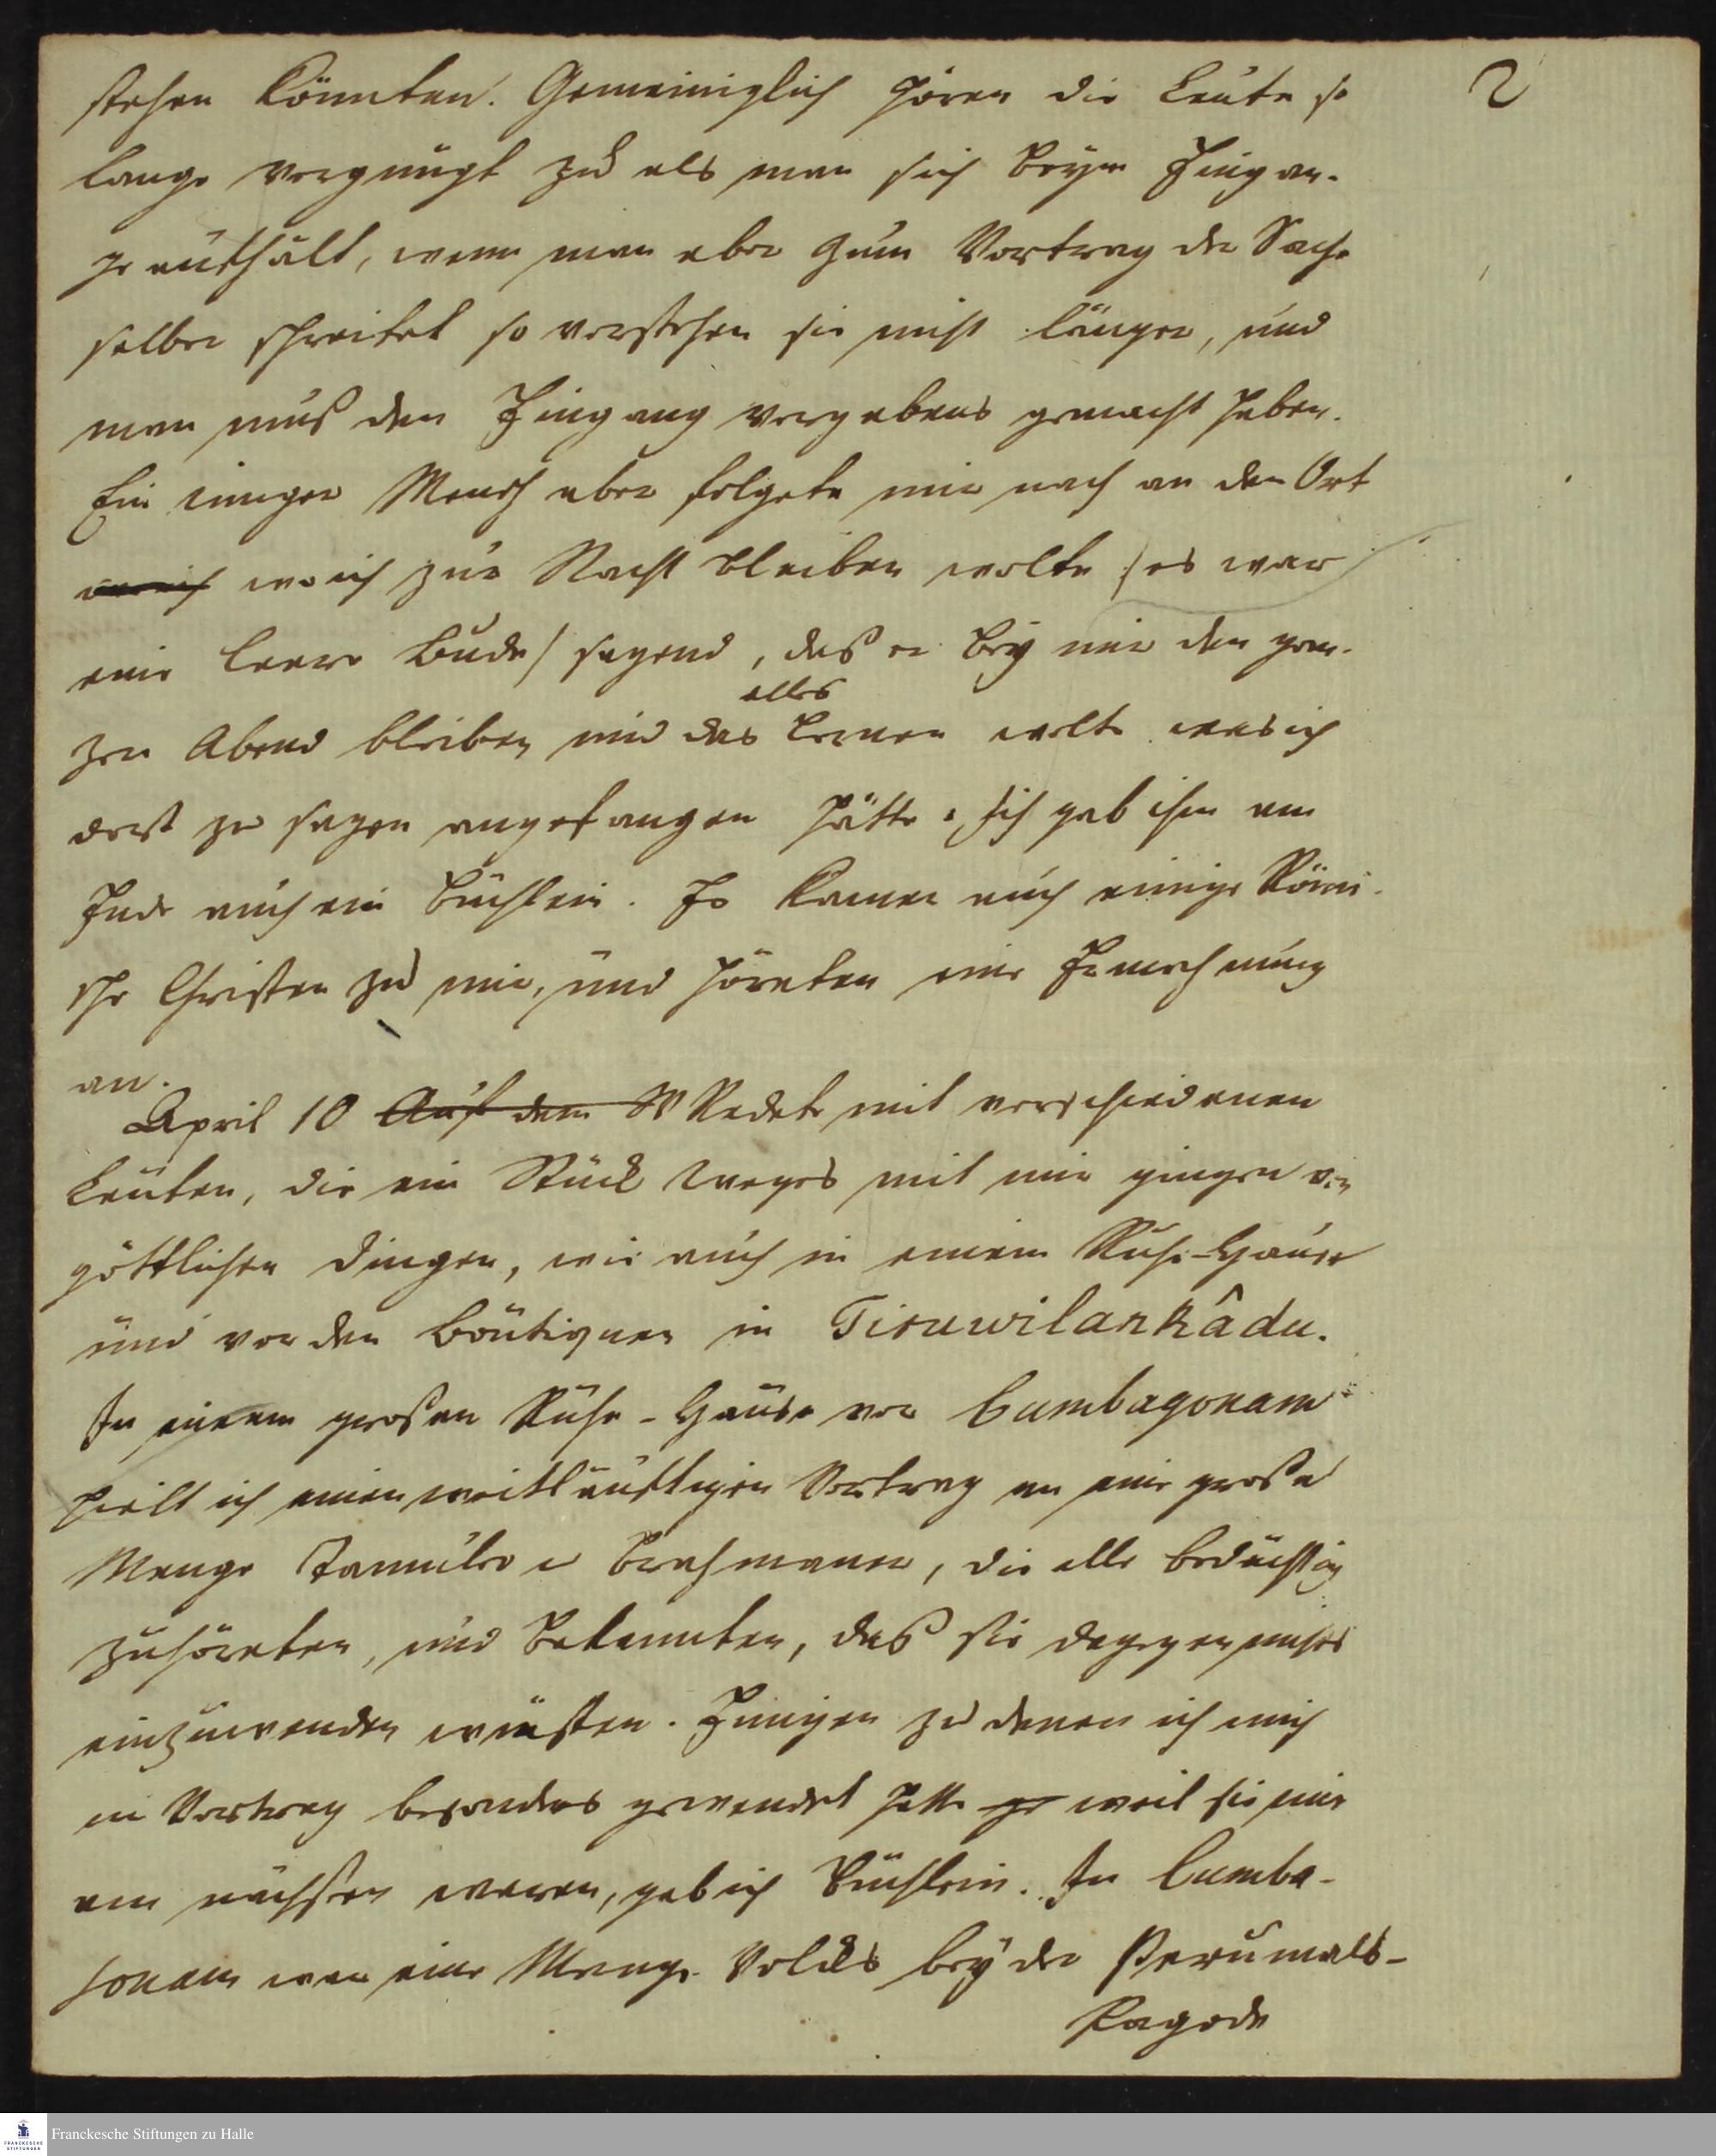 stehen könnten. Gemeiniglich hören die Leute so
2
lange vergnügt zu als man sich beym Eingan-
ge aufhält, wenn man aber zum Vortrag der Sache
selber schreitet so verstehen sie nicht länger, und
man muß den Eingang vergebens gemacht haben.
Ein einiger Mensch aber folgete mir nach an den Ort
wo ich wo ich zur Nacht bleiben wolte /es war
eine leere Bude/ sagend, daß er bey mir den gan-
alles
zen Abend bleiben und das lernen wolte was ich
dort zu sagen angefangen hätte. Ich gab ihm am
Ende auch ein Büchlein. Es kamen auch einige Römi-
sche Christen zu mir, und höreten eine Ermahnung
an.
April 10 Auf dem W Redete mit verschiedenen
Leuten, die ein Stück Weges mit mir gingen von
göttlichen Dingen, wie auch in einem Ruhe-Hause
und vor den Boutiquen in Tiruwilankâdu.
In einem großen Ruhe-Hause vor Cumbagonam
hielt ich einen weitläuftigen Vortrag an eine große
Menge Tamuler u Brahmaner, die alle bedächtig
zuhöreten, und bekannten, daß sie dagegen nichts
einzuwenden wüsten. Einigen zu denen ich mich
im Vortrag besonders gewendet hatte ge weil sie mir
am nächsten waren, gab ich Büchlein. In Cumba-
gonam war eine Menge Volcks bey der Perumals-
Pagode
Franckesche Stiftungen zu Halle
FRANCKESCHE STIFTUNGEN